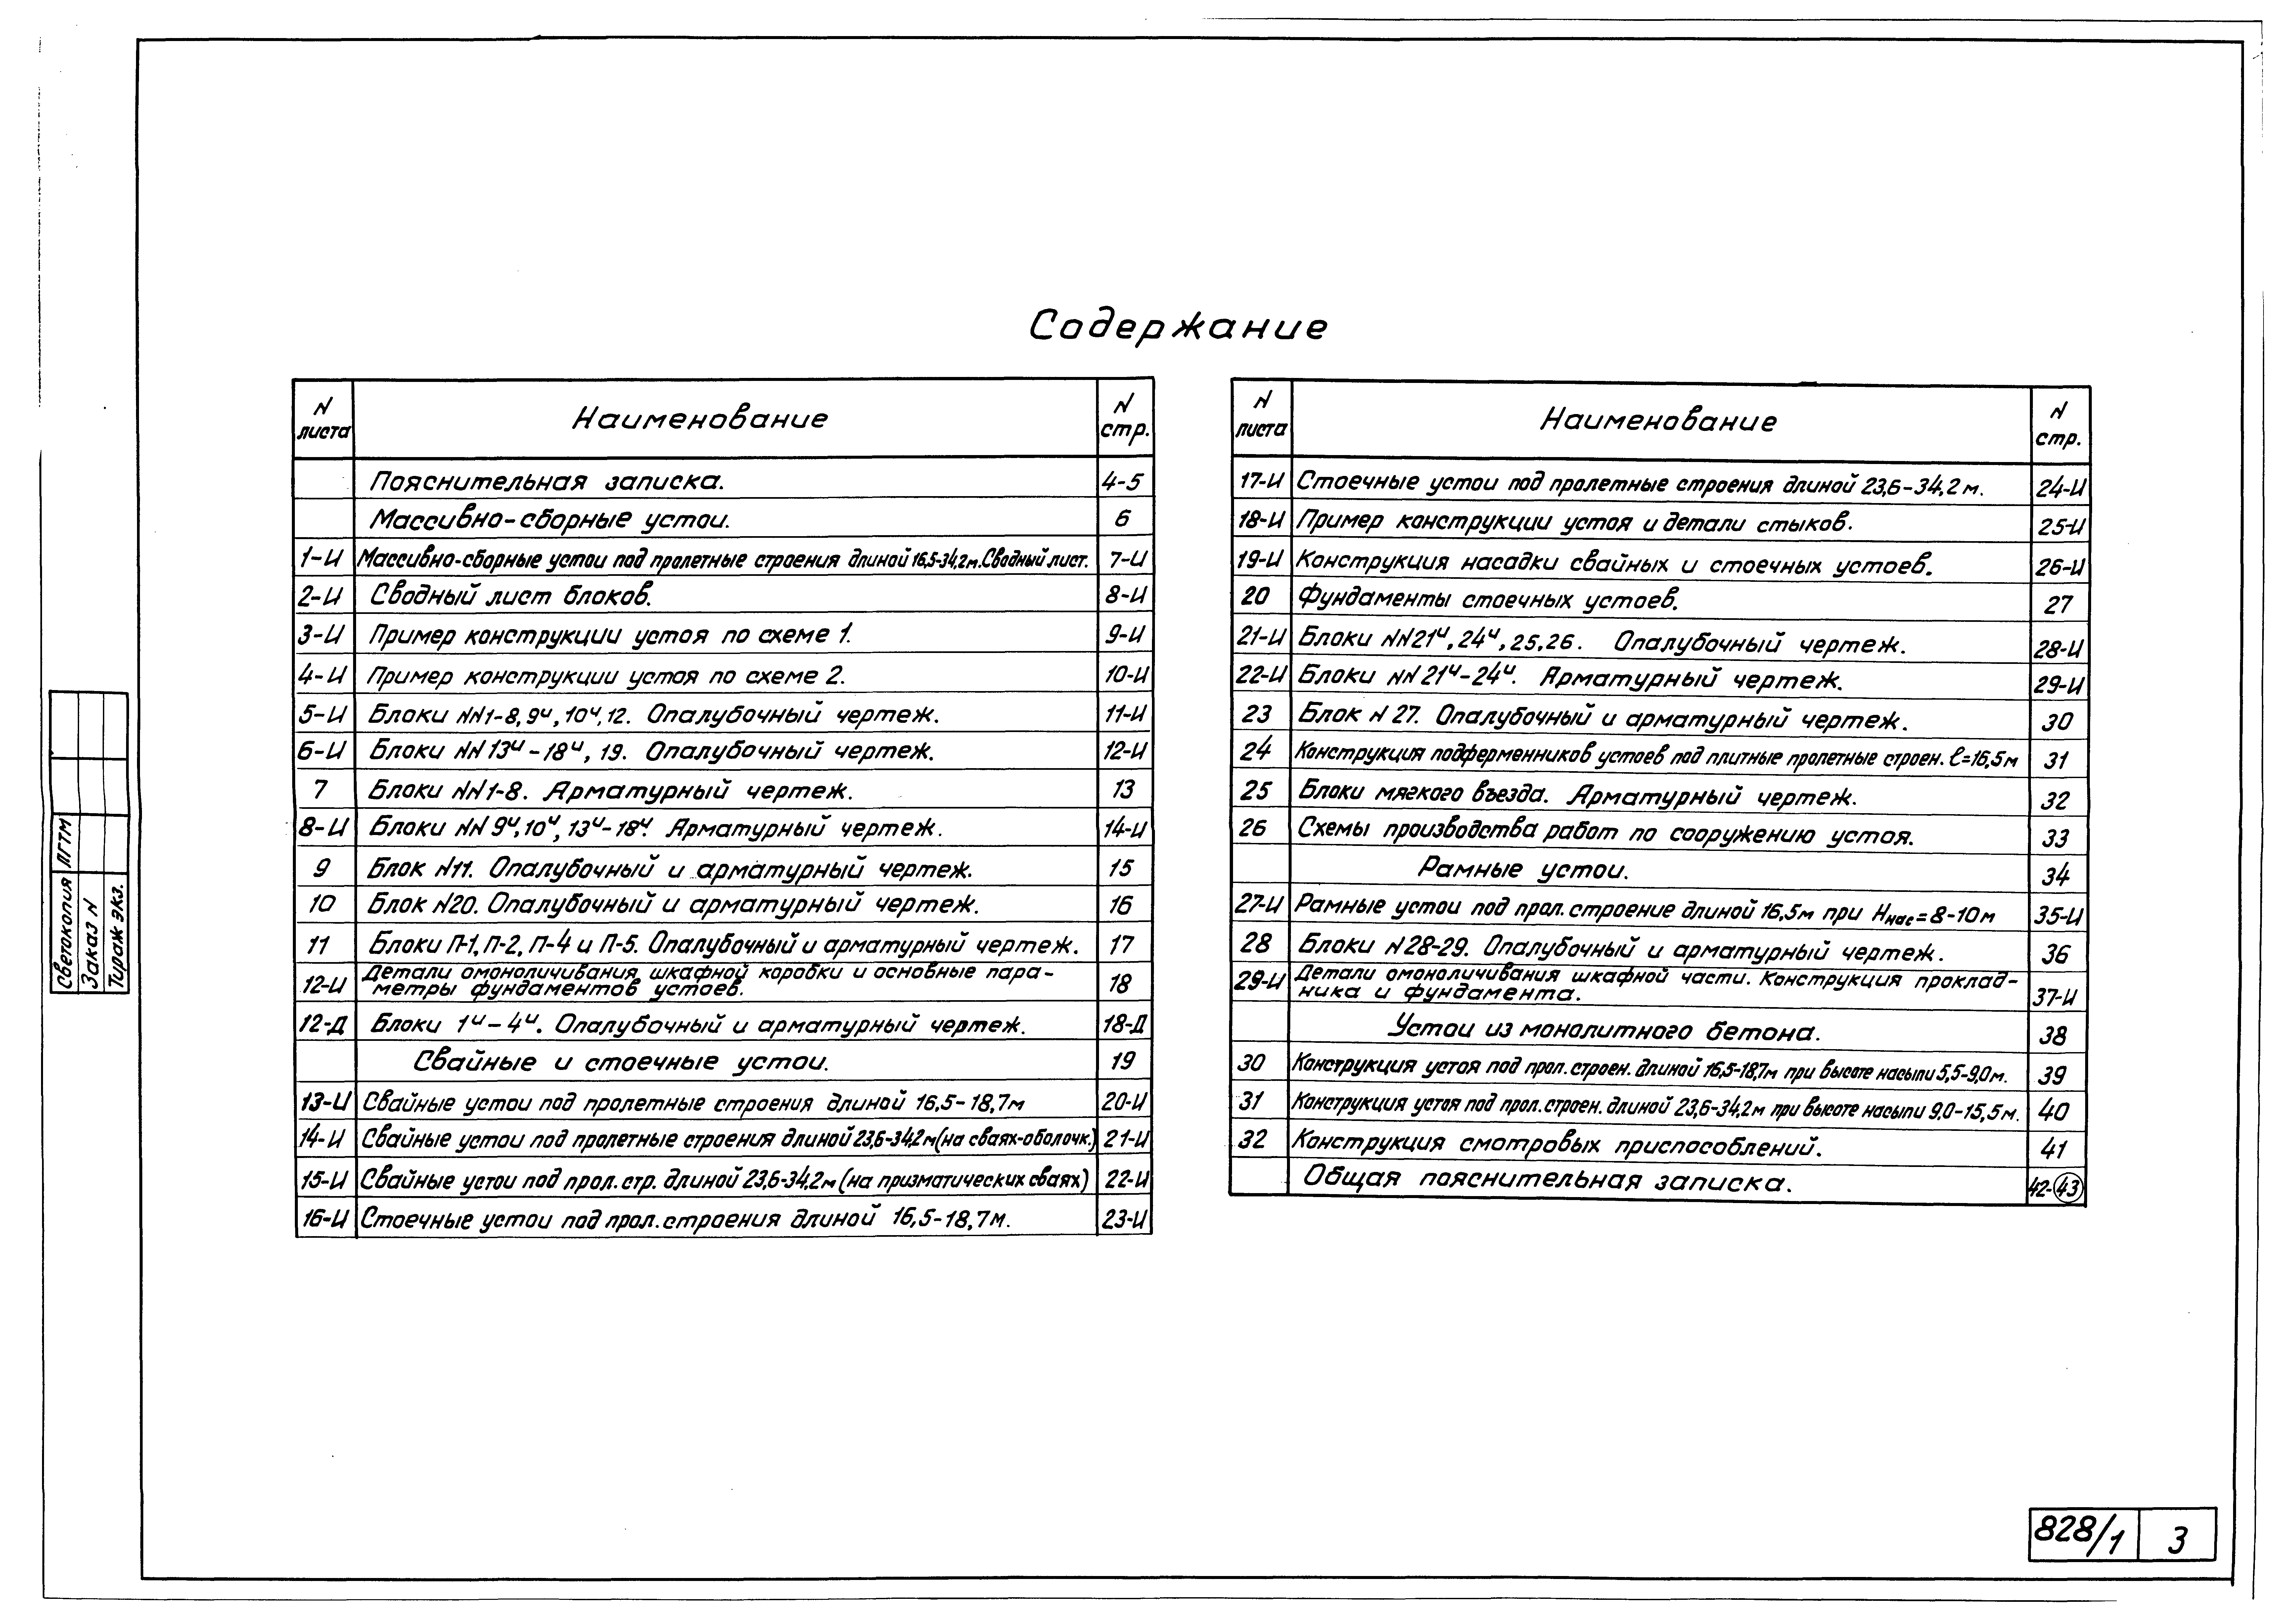 Содержание
N листа Наименование N стр.
Пояснительная записка. 4-5
Массивно-сборные устои. 6
1-И Массивно-сборные устои под пролетные строения длиной 16,5-34,2м. Сводный лист. 7-И
2-И Сводный лист блоков. 8-И
3-И Пример конструкции устоя по схеме 1. 9-И
4-И Пример конструкции устоя по схеме 2. 10-И
5-И Блоки NN1-8, 9и, 10и, 12. Опалубочный чертеж. 11-И
6-И Блоки NN 13и-18и, 19. Опалубочный чертеж. 12-И
7 Блоки NN1-8. Арматурный чертеж. 13
8-И Блоки NN 9и, 10и, 13и-18и. Арматурный чертеж. 14-И
9 Блок N11. Опалубочный и арматурный чертеж. 15
10 Блок N20. Опалубочный и арматурный чертеж. 16
11 Блоки П-1, П-2, П-4 и П-5. Опалубочный и арматурный чертеж. 17
12-И Детали омоноличивания шкафной коробки и основные пара-
метры фундаментов устоев. 18
12-Д Блоки 1и-4и. Опалубочный и арматурный чертеж. 18-Д
Свайные и стоечные устои. 19
13-И Свайные устои под пролетные строения длиной 16,5-18,7м 20-И
14-И Свайные устои под пролетные строения длиной 23,6-34,2м (на сваях-оболочк.) 21-И
15-И Свайные устои под прол. стр. длиной 23,6-34,2м (на призматических сваях) 22-И
16-И Стоечные устои под прол. строения длиной 16,5-18,7м. 23-И
N листа Наименование N стр.
17-И Стоечные устои под пролетные строения длиной 23,6-34,2м. 24-И
18-И Пример конструкции устоя и детали стыков. 25-И
19-И Конструкция насадки свайных и стоечных устоев. 26-И
20 Фундаменты стоечных устоев. 27
21-И Блоки NN21и, 24и, 25, 26. Опалубочный чертеж. 28-И
22-И Блоки NN21и-24и. Арматурный чертеж. 29-И
23 Блок N 27. Опалубочный и арматурный чертеж. 30
24 Конструкция подферменников устоев под плитные пролетные строен. ℓ=16,5м 31
25 Блоки мягкого въезда. Арматурный чертеж. 32
26 Схемы производства работ по сооружению устоя. 33
Рамные устои. 34
27-И Рамные устои под прол. строение длиной 16,5м при Hнас=8-10м 35-И
28 Блоки N28-29. Опалубочный и арматурный чертеж. 36
29-И Детали омоноличивания шкафной части. Конструкция проклад-
ника и фундамента. 37-И
Устои из монолитного бетона. 38
30 Конструкция устоя под прол. строен. длиной 16,5-18,7м при высоте насыпи 5,5-9,0м. 39
31 Конструкция устоя под прол. строен. длиной 23,6-34,2м при высоте насыпи 9,0-15,5м. 40
32 Конструкция смотровых приспособлений. 41
Общая пояснительная записка. 42-43
Светокопия ЛГТМ
Заказ N
Тираж экз.
828/1 3